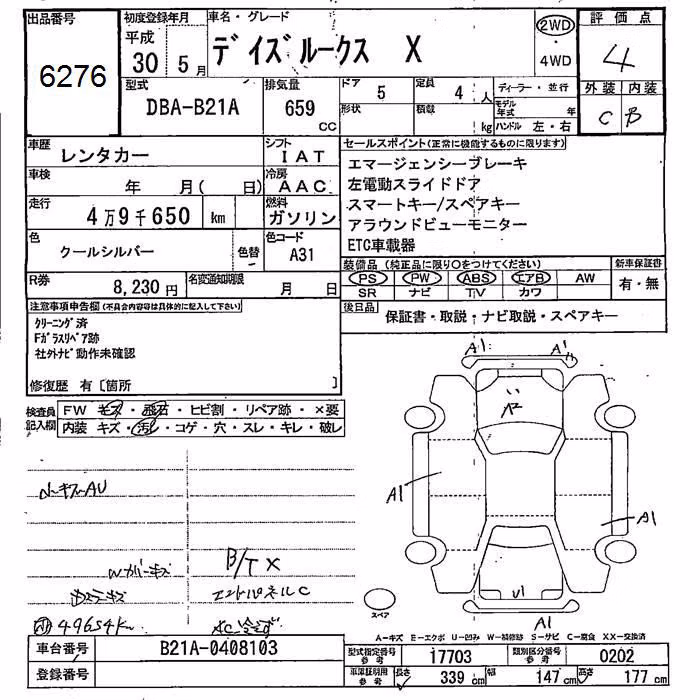 出品番号
6276
初度登録年月
平成
30 年 5 月
車名・グレード
デイズルークス X
2WD
・
4WD
評価点
4
外装 内装
C B
型式
DBA-B21A
排気量
659
CC
ドア
5
形状
定員
4 人
積載
kg
ディーラー・並行
モデル年式 年
ハンドル 左・右
車歴
レンタカー
シフト
IAT
車検
年 月( 日)
冷房
AAC
走行
4万9千650 km
燃料
ガソリン
色
クールシルバー
色替
色コード
A31
R券
8,230 円
名変通知期限
月 日
セールスポイント(正常に機能するものに限ります)
エマージェンシーブレーキ
左電動スライドドア
スマートキー/スペアキー
アラウンドビューモニター
ETC車載器
装備品 (純正品に限り〇をつけてください)
PS PW ABS エアB AW
SR ナビ TV カワ
新車保証書
有・無
後日品
保証書・取説・ナビ取説・スペアキー
注意事項申告欄(不具合内容等は具体的に記入して下さい)
クリーニング済
Fガラスリペア跡
社外ナビ動作未確認
修復歴 有〔箇所 〕
検査員記入欄
FW キズ・飛石・ヒビ割・リペア跡・×要
内装 キズ・汚レ・コゲ・穴・スレ・キレ・破レ
B/T X
49654km
A1 A1
A2
A1
A1
U1
A1
スペア
A-キズ E-エクボ U-凹み W-補修跡 S-サビ C-腐食 XX-交換済
車台番号
B21A-0408103
登録番号
型式指定番号 参考
17703
類別区分番号 参考
0202
車庫証明用 参考
長さ 339 cm 幅 147 cm 高さ 177 cm